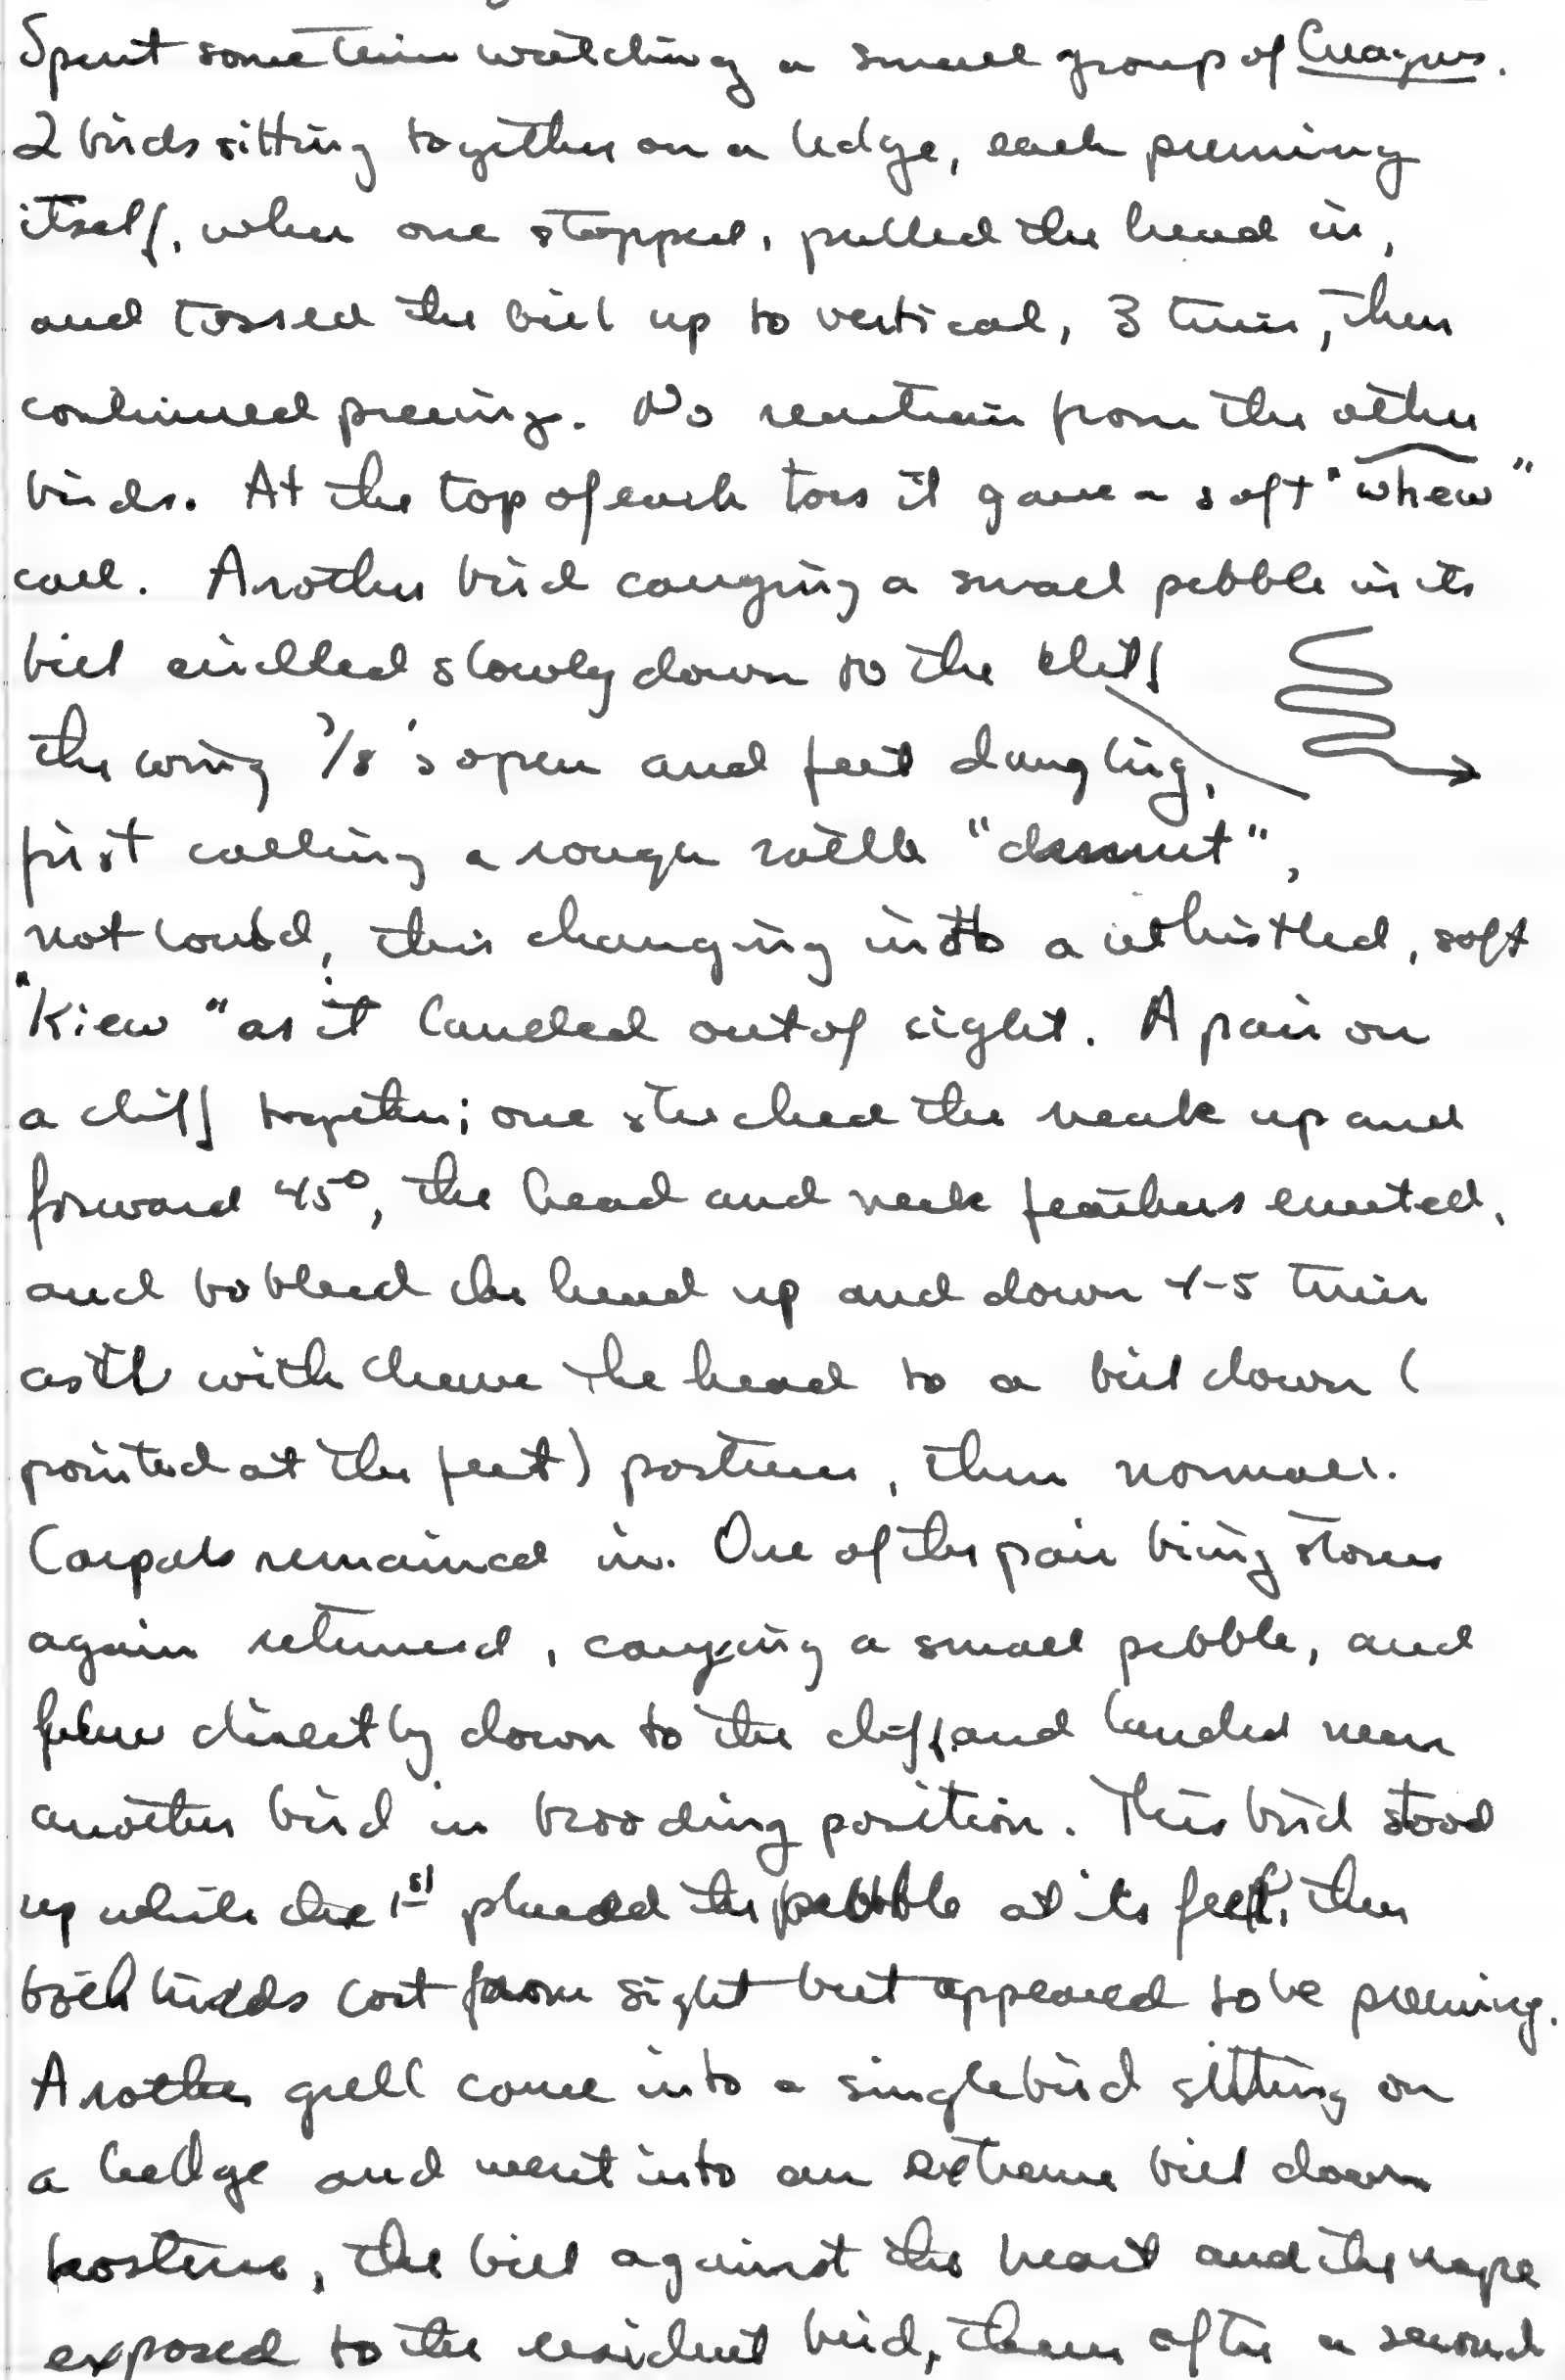 Spent some time watching a small group of Creagrus.
2 birds sitting together on a ledge, each preening
itself, when one stopped, pulled the head in,
and tossed the bill up to vertical, 3 times, then
continued preening. No reaction from the other
birds. At the top of each toss it gave a soft "whew"
call. Another bird carrying a small pebble in its
bill circled slowly down to the cliff
the wing 7/8's open and feet dangling,
first calling a rough rattle
not loud, this changing into a whistled, soft
"Kiew" as it landed out of sight. A pair on
a cliff together; one stretched the neck up and
forward 45°, the head and neck feathers erected,
and bobbed the head up and down 4-5 times
with the head to a bill down (
pointed at the feet) posture, then normal.
Carpals remained in. One of the pair bring stones
again returned, carrying a small pebble, and
flew directly down to the cliff and landed near
another bird in brooding position. This bird stood
up while the 1st placed the pebble at its feet, then
both birds lost from sight but appeared to be preening.
Another gull came into a single bird sitting on
a ledge and went into an extreme bill down
posture, the bill against the breast and the nape
exposed to the resident bird, then after a second